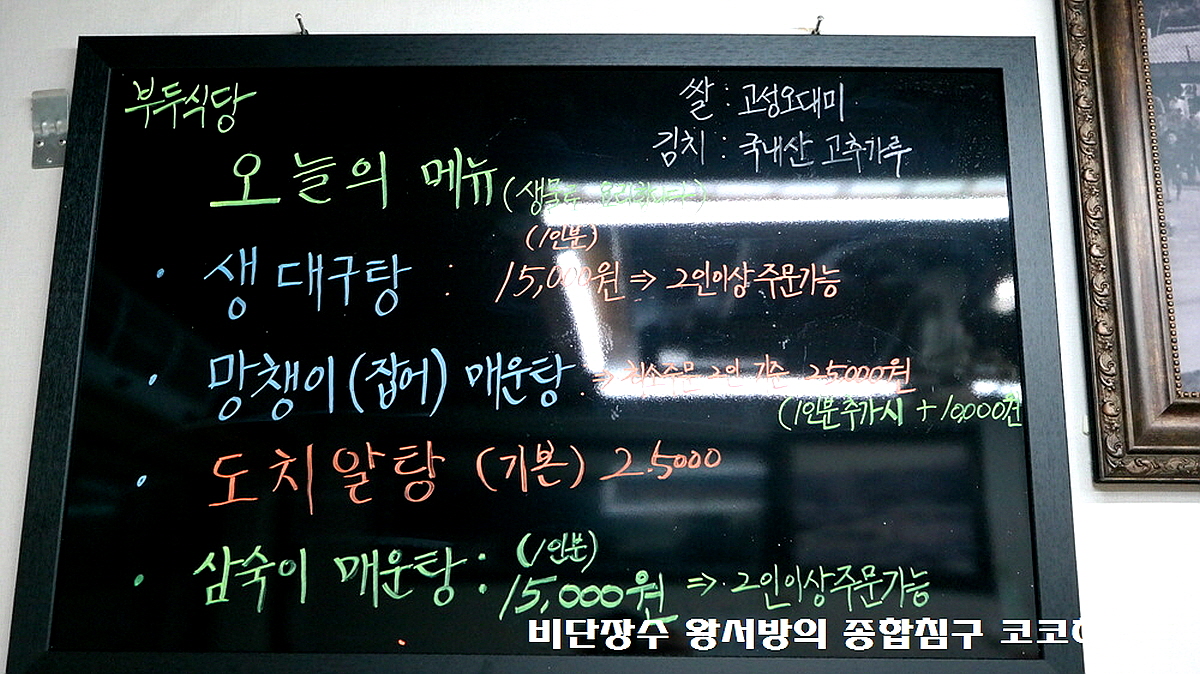 부두식당
쌀 : 고성오대미
김치 : 국내산 고추가루
오늘의 메뉴 (생물로
(1인분)
· 생대구탕 : 15,000원 ⇒ 2인이상 주문가능
· 망챙이 (잡어) 매운탕 : ⇒ 최소주문 2인 기준 25000원
(1인분 추가시 + 10,000원
· 도치알탕 (기본) 2.5000
(1인분)
· 삼숙이 매운탕 : 15,000원 ⇒ 2인이상 주문가능
비단장수 왕서방의 종합침구 코코